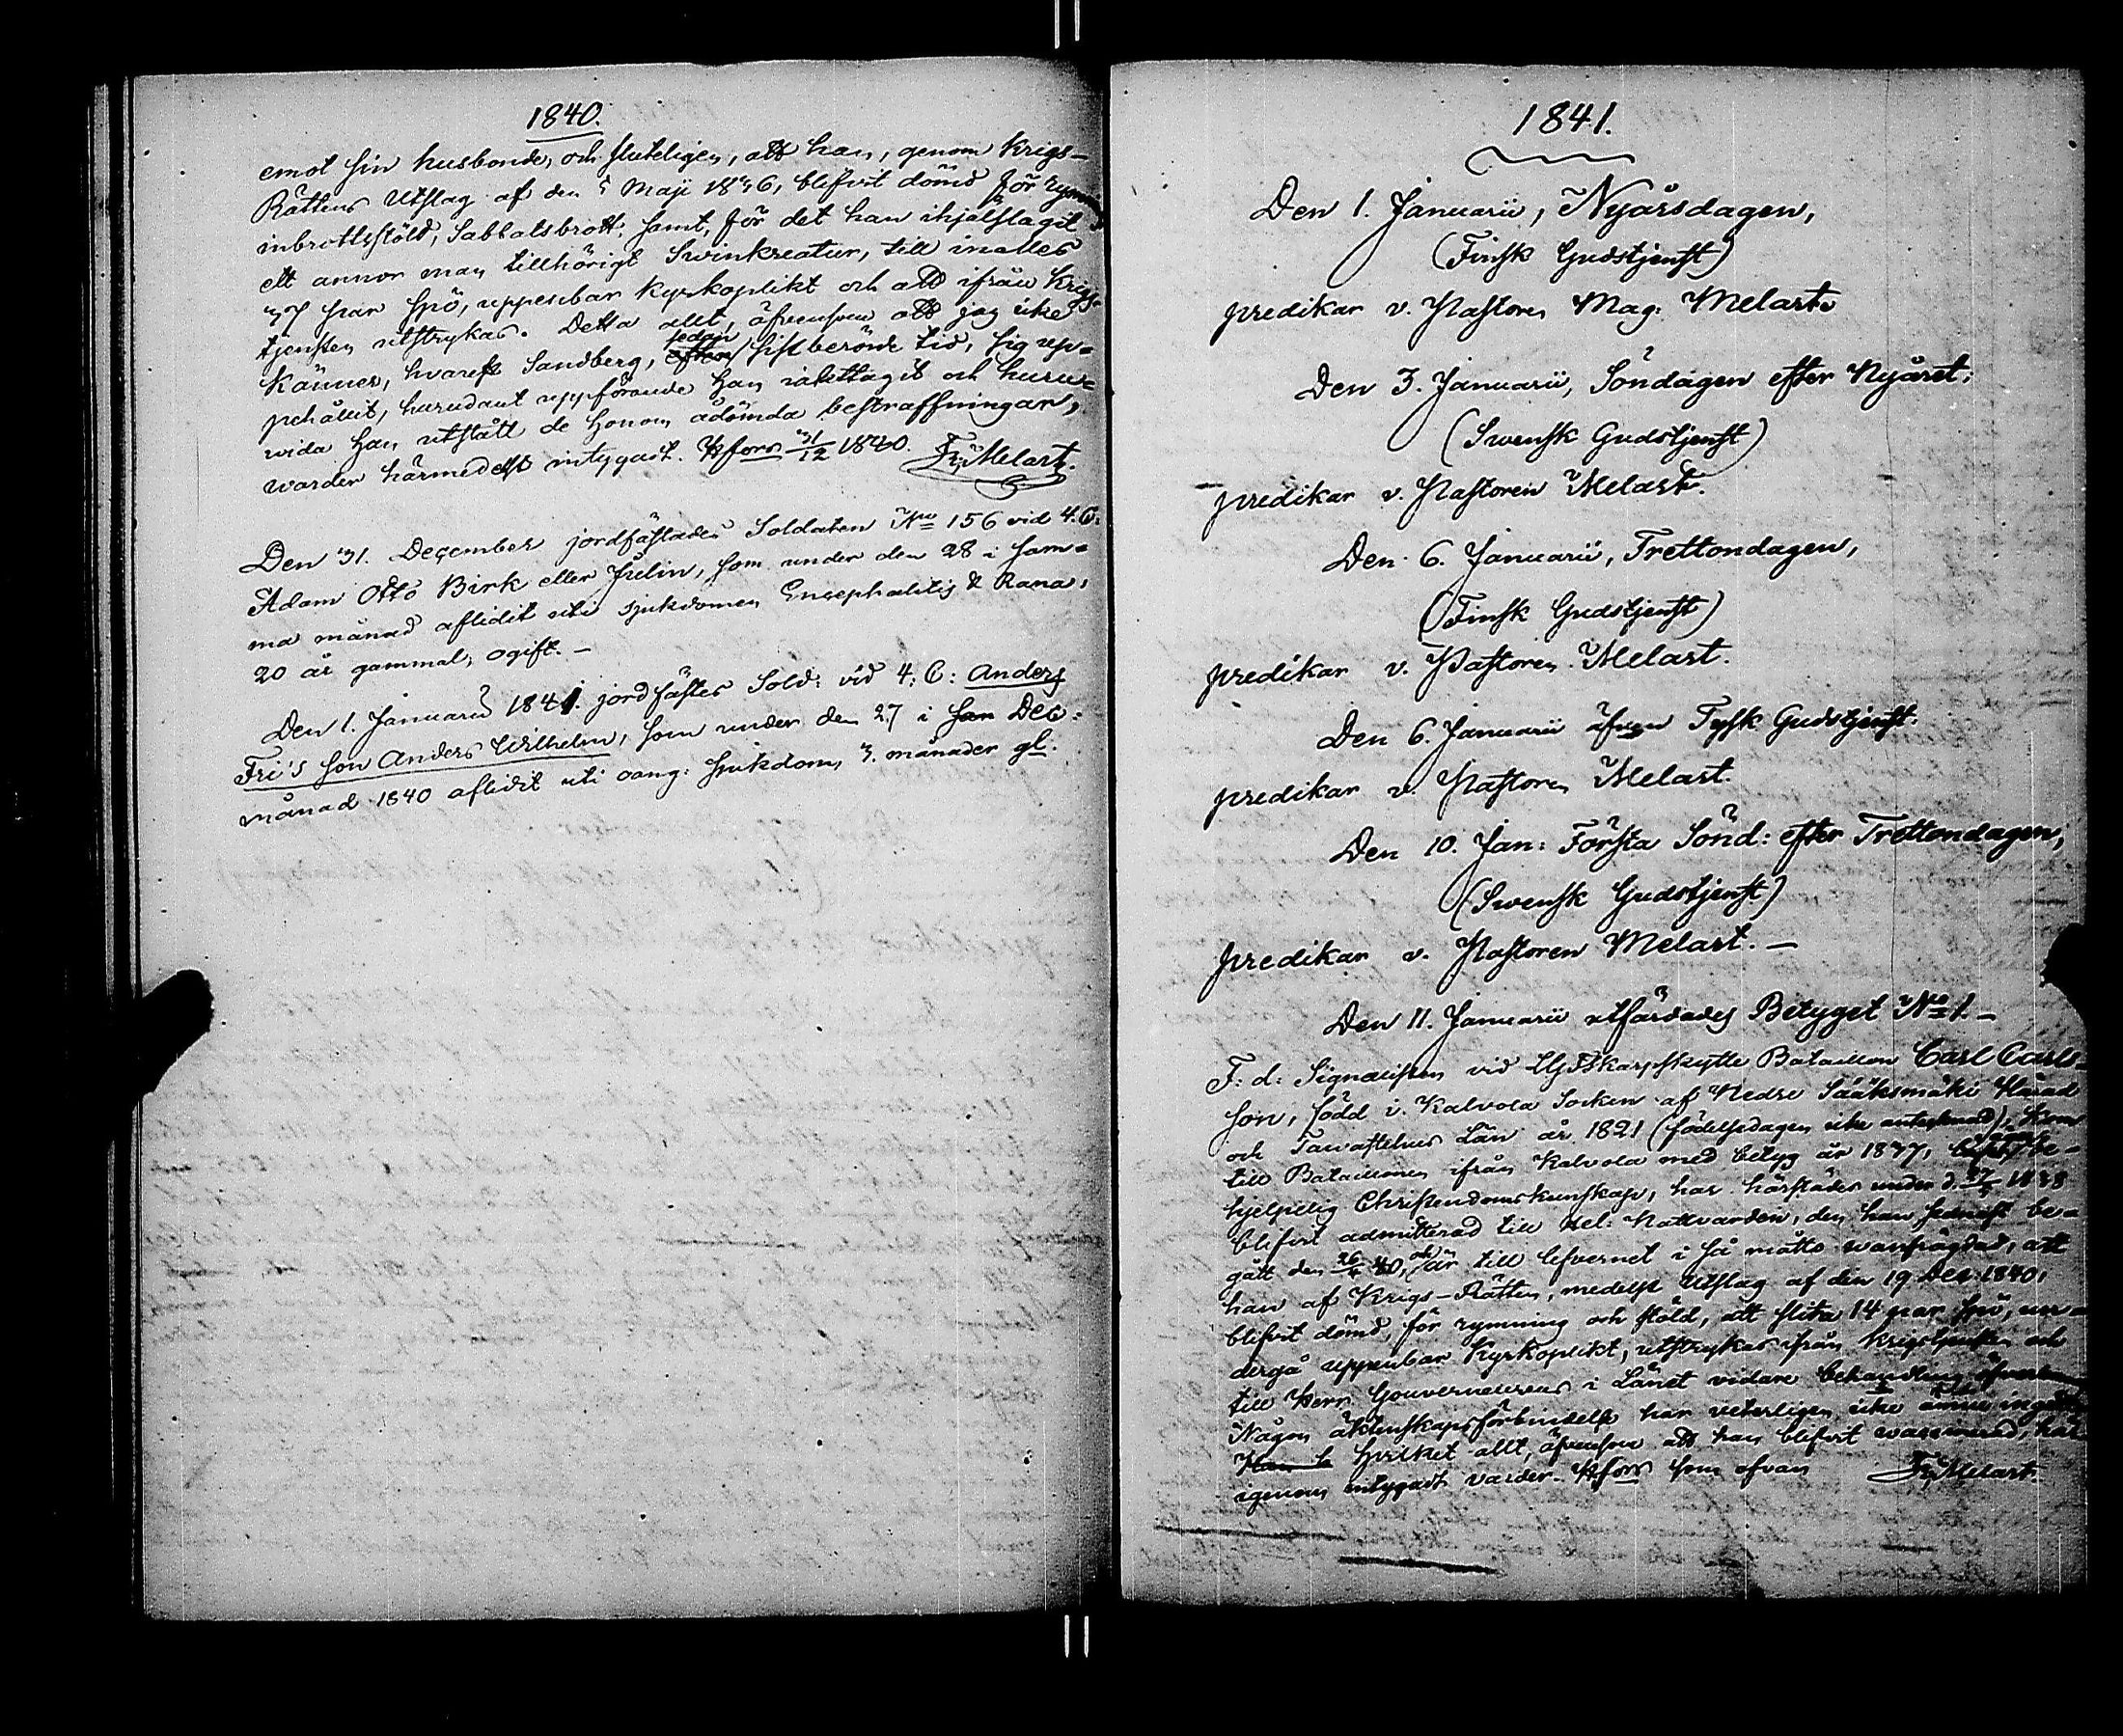 1840.
emot sin husbonde, och sluteligen, att han, genom Krigs-
Rättens Utslag af den 5 Maji 1836, blifvit dömd för rymning
inbrottsstöld, Sabbatsbrott, samt, för det han ihjälslagit
ett annor man tillhörigt Svinkreatur, till inalles
37 par spö, uppenbar Kyrkoplikt och att ifrån Krigs-
tjensten utstrykas. Detta allt, äfvensom att jag icke
känner, hvarest Sandberg, efter sedan sistberörde tid, sig up-
pehållit, hurudant uppförande han iakttagit och huru-
vida han utstått de honom ådömda bestraffningar,
warder härmedelst intygadt. Hfors 31/12 1840. Fr: Melart.
Den 31. December jordfästades Soldaten No 156 vid 4. C:
Adam Otto Birk eller Julin, som under den 28 i sam-
ma månad aflidit uti sjukdomen Encephalitis & Rana,
20 år gammal, ogift. -
Den 1. Januarii 1841. jordfästes Sold: vid 4: C: Anders
Fri's son Anders Wilhelm, som under den 27 i sam Dec:
månad 1840 aflidit uti oang: sjukdom, 3. månader gl.
1841.
Den 1. Januarii, Nyårsdagen,
(Finsk Gudstjenst)
predikar v. Pastoren Mag: Melart.
Den 3. Januarii, Söndagen efter Nyåret;
(Swensk Gudstjenst)
predikar v. Pastoren Melart.
Den 6. Januarii, Trettondagen,
(Finsk Gudstjenst)
predikar v. Pastoren Melart.
Den 6. Januarii äfven Tysk Gudstjenst.
predikar v. Pastoren Melart.
Den 10. Jan: Första Sönd: efter Trettondagen,
(Swensk Gudstjenst)
predikar v. Pastoren Melart. -
Den 11. Januarii utfärdades Betyget No 1. -
F: d: Signalisten vid Skarpskytte Bataillon Carl Carls-
son, född i Kalvola Socken af Nedre Sääksmäki Härad
och Tawastehus Län år 1821 (födelsedagen icke antecknad), kom
till Bataillonen ifrån Kalvola med betyg år 1837, be-
hjelpelig Christendomskunskap, har härstädes under d. 1838
blifvit admitterad till Hel: Nattvarden, den han sednast be-
gått den 26/4 40, och är till lefvernet i så måtto wanfrägdad, att
han af Krigs-Rätten, medelst Utslag af den 19 Dec: 1840,
blifvit dömd, för rymning och stöld, att slita 14 par spö, un-
dergå uppenbar Kyrkoplikt, utstrykas ifrån Krigstjensten och
till Herr Gouverneurens i Länet vidare behandling öfverlemnas
Någon äktenskapsförbindelse har veterligen icke ännu ingått
Han b hvilket allt, äfvensom att han blifvit waccinerad, här-
igenom intygadt varder. Hfors som ofvan Fr: Melart